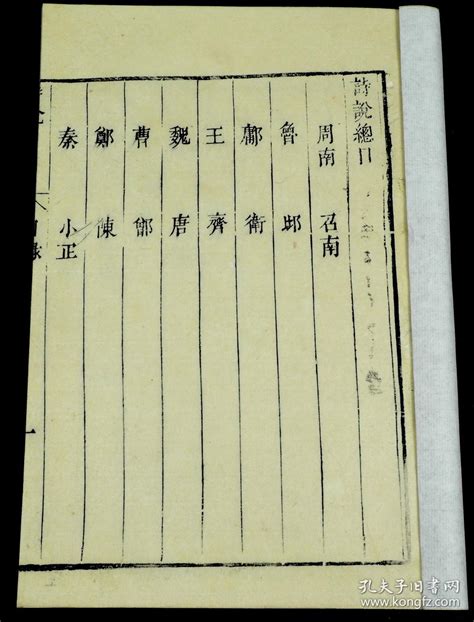 詩說總目
周南 召南
魯 邶
鄘 衛
王 齊
魏 唐
曹 鄶
鄭 陳
秦 小正
一
孔夫子旧书网
www.kongfz.com